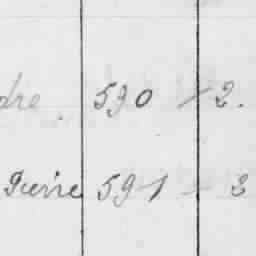 dre. 590 - 2.
Pierre 591 - 3